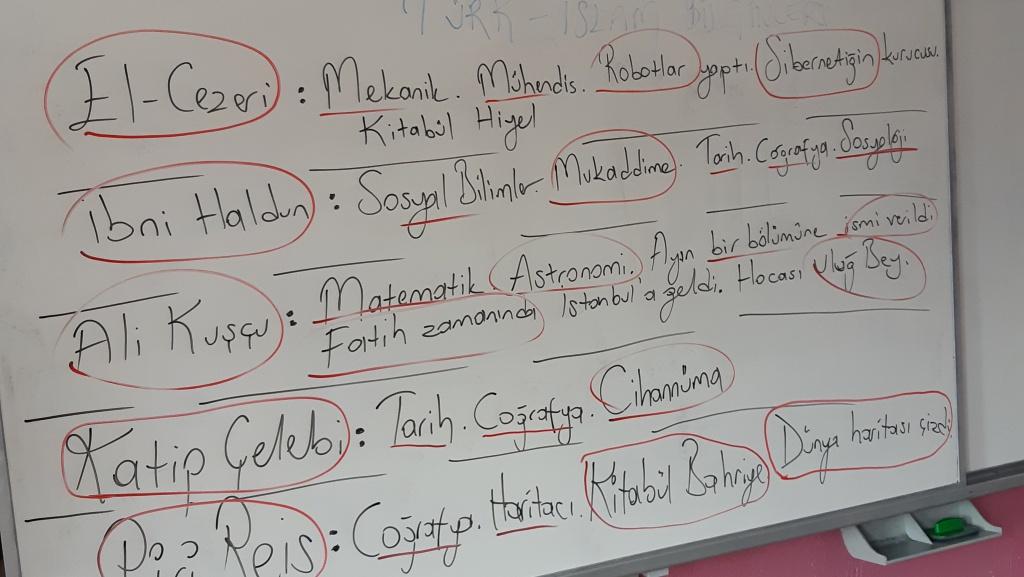 TÜRK-İSLAM BİLGİNLERİ
El-Cezeri : Mekanik. Mühendis. Robotlar yaptı. Sibernetiğin kurucusu.
Kitabül Hiyel
İbni Haldun : Sosyal Bilimler. Mukaddime. Tarih. Coğrafya. Sosyoloji
Ali Kuşçu : Matematik Astronomi. Ayın bir bölümüne ismi verildi
Fatih zamanında İstanbul'a geldi. Hocası Uluğ Bey.
Katip Çelebi : Tarih. Coğrafya. Cihannüma
Piri Reis : Coğrafya. Haritacı. Kitabül Bahriye Dünya haritası çizdi.